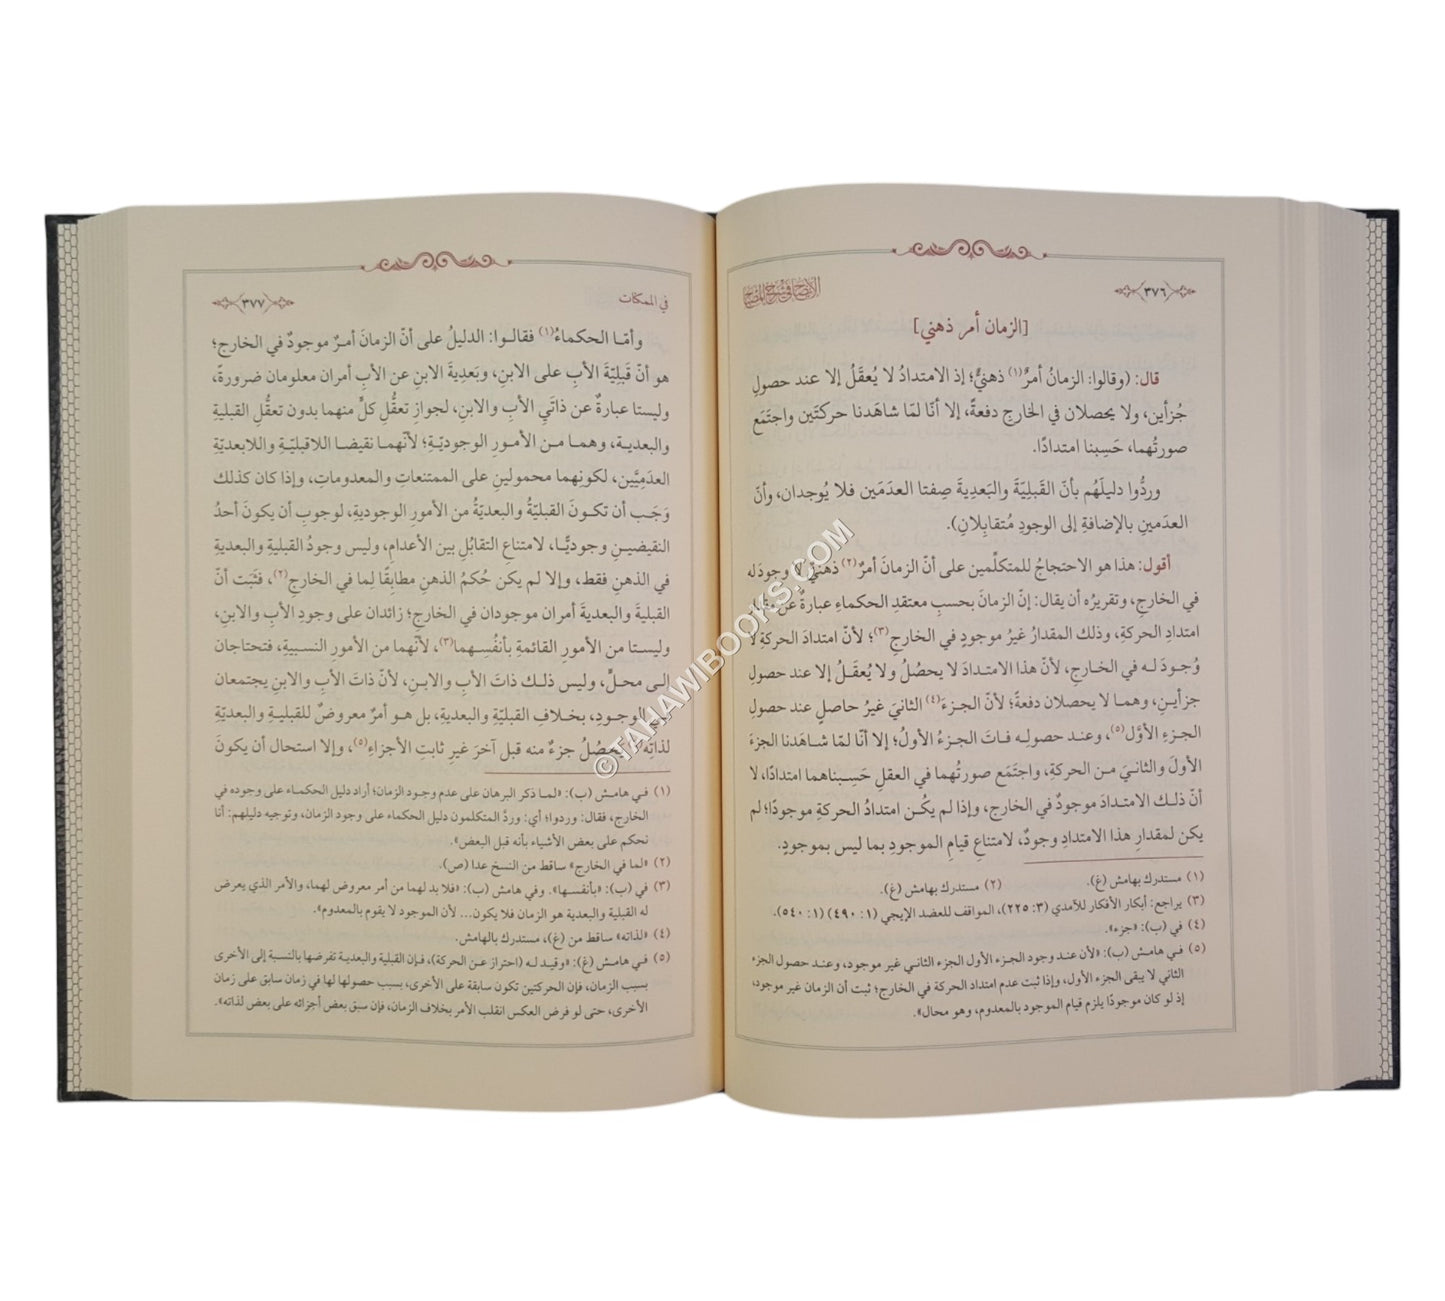 ٣٧٦
الإيضاح في شرح المصباح
[الزمان أمر ذهني]
قال: (وقالوا: الزمانُ أمرٌ(١) ذهنيٌّ؛ إذ الامتدادُ لا يُعقَلُ إلا عند حصولِ
جُزأين، ولا يحصلان في الخارج دفعةً، إلا أنّا لمّا شاهَدنا حركتَين واجتَمَع
صورتُهما، حَسِبنا امتدادًا.
وردُّوا دليلَهُم بأنّ القَبليَّةَ والبَعديةَ صِفتا العدَمَين فلا يُوجدان، وأنّ
العدَمينِ بالإضافةِ إلى الوجودِ مُتقابِلانِ).
أقول: هذا هو الاحتجاجُ للمتكلِّمين على أنّ الزمانَ أمرٌ(٢) ذهنيٌّ لا وجودَ له
في الخارجِ، وتقريرُه أن يقال: إنّ الزمانَ بحسبِ معتقدِ الحكماءِ عبارةٌ عن مقدار
امتدادِ الحركةِ، وذلك المقدارُ غيرُ موجودٍ في الخارجِ(٣)؛ لأنّ امتدادَ الحركةِ لا
وُجودَ له في الخارجِ، لأنّ هذا الامتدادَ لا يحصُلُ ولا يُعقَلُ إلا عند حصولِ
جزأينِ، وهما لا يحصلان دفعةً؛ لأنّ الجزءَ(٤) الثانيَ غيرُ حاصلٍ عند حصولِ
الجزءِ الأوّل(٥)، وعند حصولِه فاتَ الجزءُ الأولُ؛ إلا أنّا لمّا شاهَدنا الجزءَ
الأولَ والثانيَ من الحركةِ، واجتَمَع صورتُهما في العقلِ حَسِبناهما امتدادًا، لا
أنّ ذلك الامتدادَ موجودٌ في الخارجِ، وإذا لم يكُن امتدادُ الحركةِ موجودًا؛ لم
يكن لمقدارِ هذا الامتدادِ وجودٌ، لامتناعِ قيامِ الموجودِ بما ليس بموجودٍ.
(١) مستدرك بهامش (غ). (٢) مستدرك بهامش (غ).
(٣) يراجع: أبكار الأفكار للآمدي (٣: ٢٢٥)، المواقف للعضد الإيجي (١: ٤٩٠) (١: ٥٤٠).
(٤) في (ب): «جزء».
(٥) في هامش (ب): «لأن عند وجود الجزء الأول الجزء الثاني غير موجود، وعند حصول الجزء
الثاني لا يبقى الجزء الأول، وإذا ثبت عدم امتداد الحركة في الخارج؛ ثبت أن الزمان غير موجود،
إذ لو كان موجودًا يلزم قيام الموجود بالمعدوم، وهو محال».
في الممكنات
٣٧٧
وأمّا الحكماءُ(١) فقالوا: الدليلُ على أنّ الزمانَ أمرٌ موجودٌ في الخارج؛
هو أنّ قَبليّةَ الأبِ على الابنِ، وبَعديةَ الابنِ عن الأبِ أمران معلومان ضرورةً،
وليستا عبارةً عن ذاتَي الأبِ والابنِ، لجوازِ تعقُّلِ كلٍّ منهما بدون تعقُّلِ القبليةِ
والبعدية، وهما من الأمورِ الوجوديّةِ؛ لأنّهما نقيضا اللاقبليّةِ واللابعديّةِ
العدَمِيَّين، لكونِهما محمولينِ على الممتنعاتِ والمعدوماتِ، وإذا كان كذلك
وَجَب أن تكونَ القبليّةُ والبعديّةُ من الأمورِ الوجوديةِ، لوجوبِ أن يكونَ أحدُ
النقيضينِ وجوديًّا، لامتناعِ التقابُلِ بين الأعدامِ، وليس وجودُ القبليةِ والبعديةِ
في الذهنِ فقط، وإلا لم يكن حُكمُ الذهنِ مطابِقًا لِما في الخارجِ(٢)، فثَبَت أنّ
القبليةَ والبعديةَ أمران موجودان في الخارجِ؛ زائدان على وجودِ الأبِ والابنِ،
وليستا من الأمورِ القائمةِ بأنفُسِهما(٣)، لأنّهما من الأمورِ النسبيةِ، فتحتاجان
إلى محلٍّ، وليس ذلك ذاتَ الأبِ والابنِ، لأنّ ذاتَ الأبِ والابنِ يجتمعان
في الوجودِ، بخلافِ القبليّةِ والبعديةِ، بل هو أمرٌ معروضٌ للقبليةِ والبعديّةِ
لذاتِه يحصُلُ جزءٌ منه قبل آخرَ غيرِ ثابتِ الأجزاءِ(٥)، وإلا استحال أن يكونَ
(١) في هامش (ب): «لما ذكر البرهان على عدم وجود الزمان؛ أراد دليل الحكماء على وجوده في
الخارج، فقال: وردوا؛ أي: وردَّ المتكلمون دليل الحكماء على وجود الزمان، وتوجيه دليلهم: أنا
نحكم على بعض الأشياء بأنه قبل البعض».
(٢) «لما في الخارج» ساقط من النسخ عدا (ص).
(٣) في (ب): «بأنفسها». وفي هامش (ب): «فلا بد لهما من أمر معروض لهما، والأمر الذي يعرض
له القبلية والبعدية هو الزمان فلا يكون... لأن الموجود لا يقوم بالمعدوم».
(٤) «لذاته» ساقط من (غ)، مستدرك بالهامش.
(٥) في هامش (غ): «وقيد له (احتراز عن الحركة)، فإن القبلية والبعدية تفرضها بالنسبة إلى الأخرى
بسبب الزمان، فإن الحركتين تكون سابقة على الأخرى، بسبب حصولها لها في زمان سابق على زمان
الأخرى، حتى لو فرض العكس انقلب الأمر بخلاف الزمان، فإن سبق بعض أجزائه على بعض لذاته».
©TAHAWIBOOKS.COM